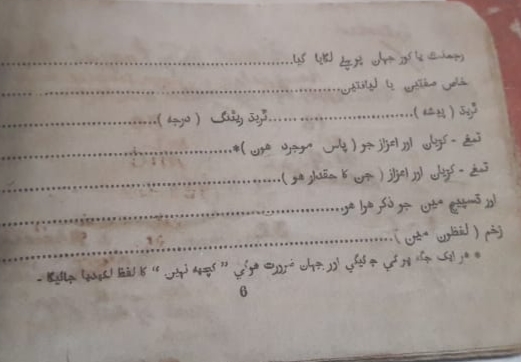 رجمنٹ یا کور جہاں پہلے لگایا گیا........................
خاص صفتیں یا لیاقتیں........................
ٹریڈ ( پیشہ )........................ٹریڈ ریٹنگ ( درجہ )........................
تمغے - کڑیاں اور اعزاز جو ( پاس موجود ہوں )*........................
تمغے - کڑیاں اور اعزاز ( جن کا حقدار ہو )........................
اور ڈسپیچ میں جو ذکر ہوا ہو........................
زخم ( لفظوں میں )........................
* ہر ایک جگہ پر کی جائیگی اور جہاں ضرورت ہوگی ” کچھہ نہیں “ کا لفظ لکھدیا جائیگا -
6